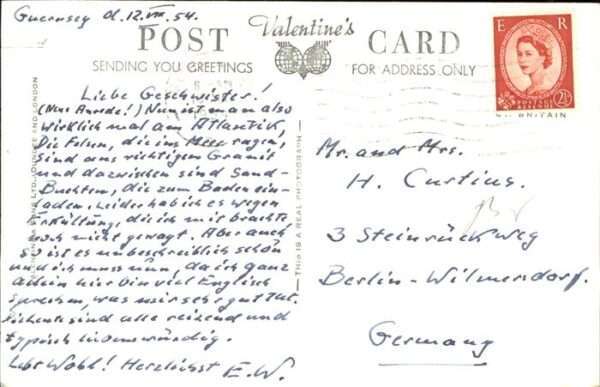 Guernsey d. 12. VIII. 54.
Valentine's
POST CARD
SENDING YOU GREETINGS
FOR ADDRESS ONLY
E R
POSTAGE REVENUE
2½
BRITAIN
Liebe Geschwister!
(Neue Anrede!) Nun ist man also
wirklich mal am Atlantik,
Die Felsen, die ins Meer ragen,
sind aus richtigem Granit
und dazwischen sind Sand-
Buchten, die zum Baden ein-
laden, leider hab ich es wegen
Erkältung, die ich mit brachte
noch nicht gewagt. Aber auch
so ist es unbeschreiblich schön
und ich muss nun, da ich ganz
allein hier bin viel Englisch
sprechen, was mir sehr gut tut.
sind alle reizend und
typisch liebenswürdig.
Lebt Wohl! Herzlichst E.W.
THIS IS A REAL PHOTOGRAPH
LTD., DUNDEE AND LONDON
Mr. and Mrs.
H. Curtius.
3 Steinrück Weg
Berlin-Wilmersdorf.
Germany